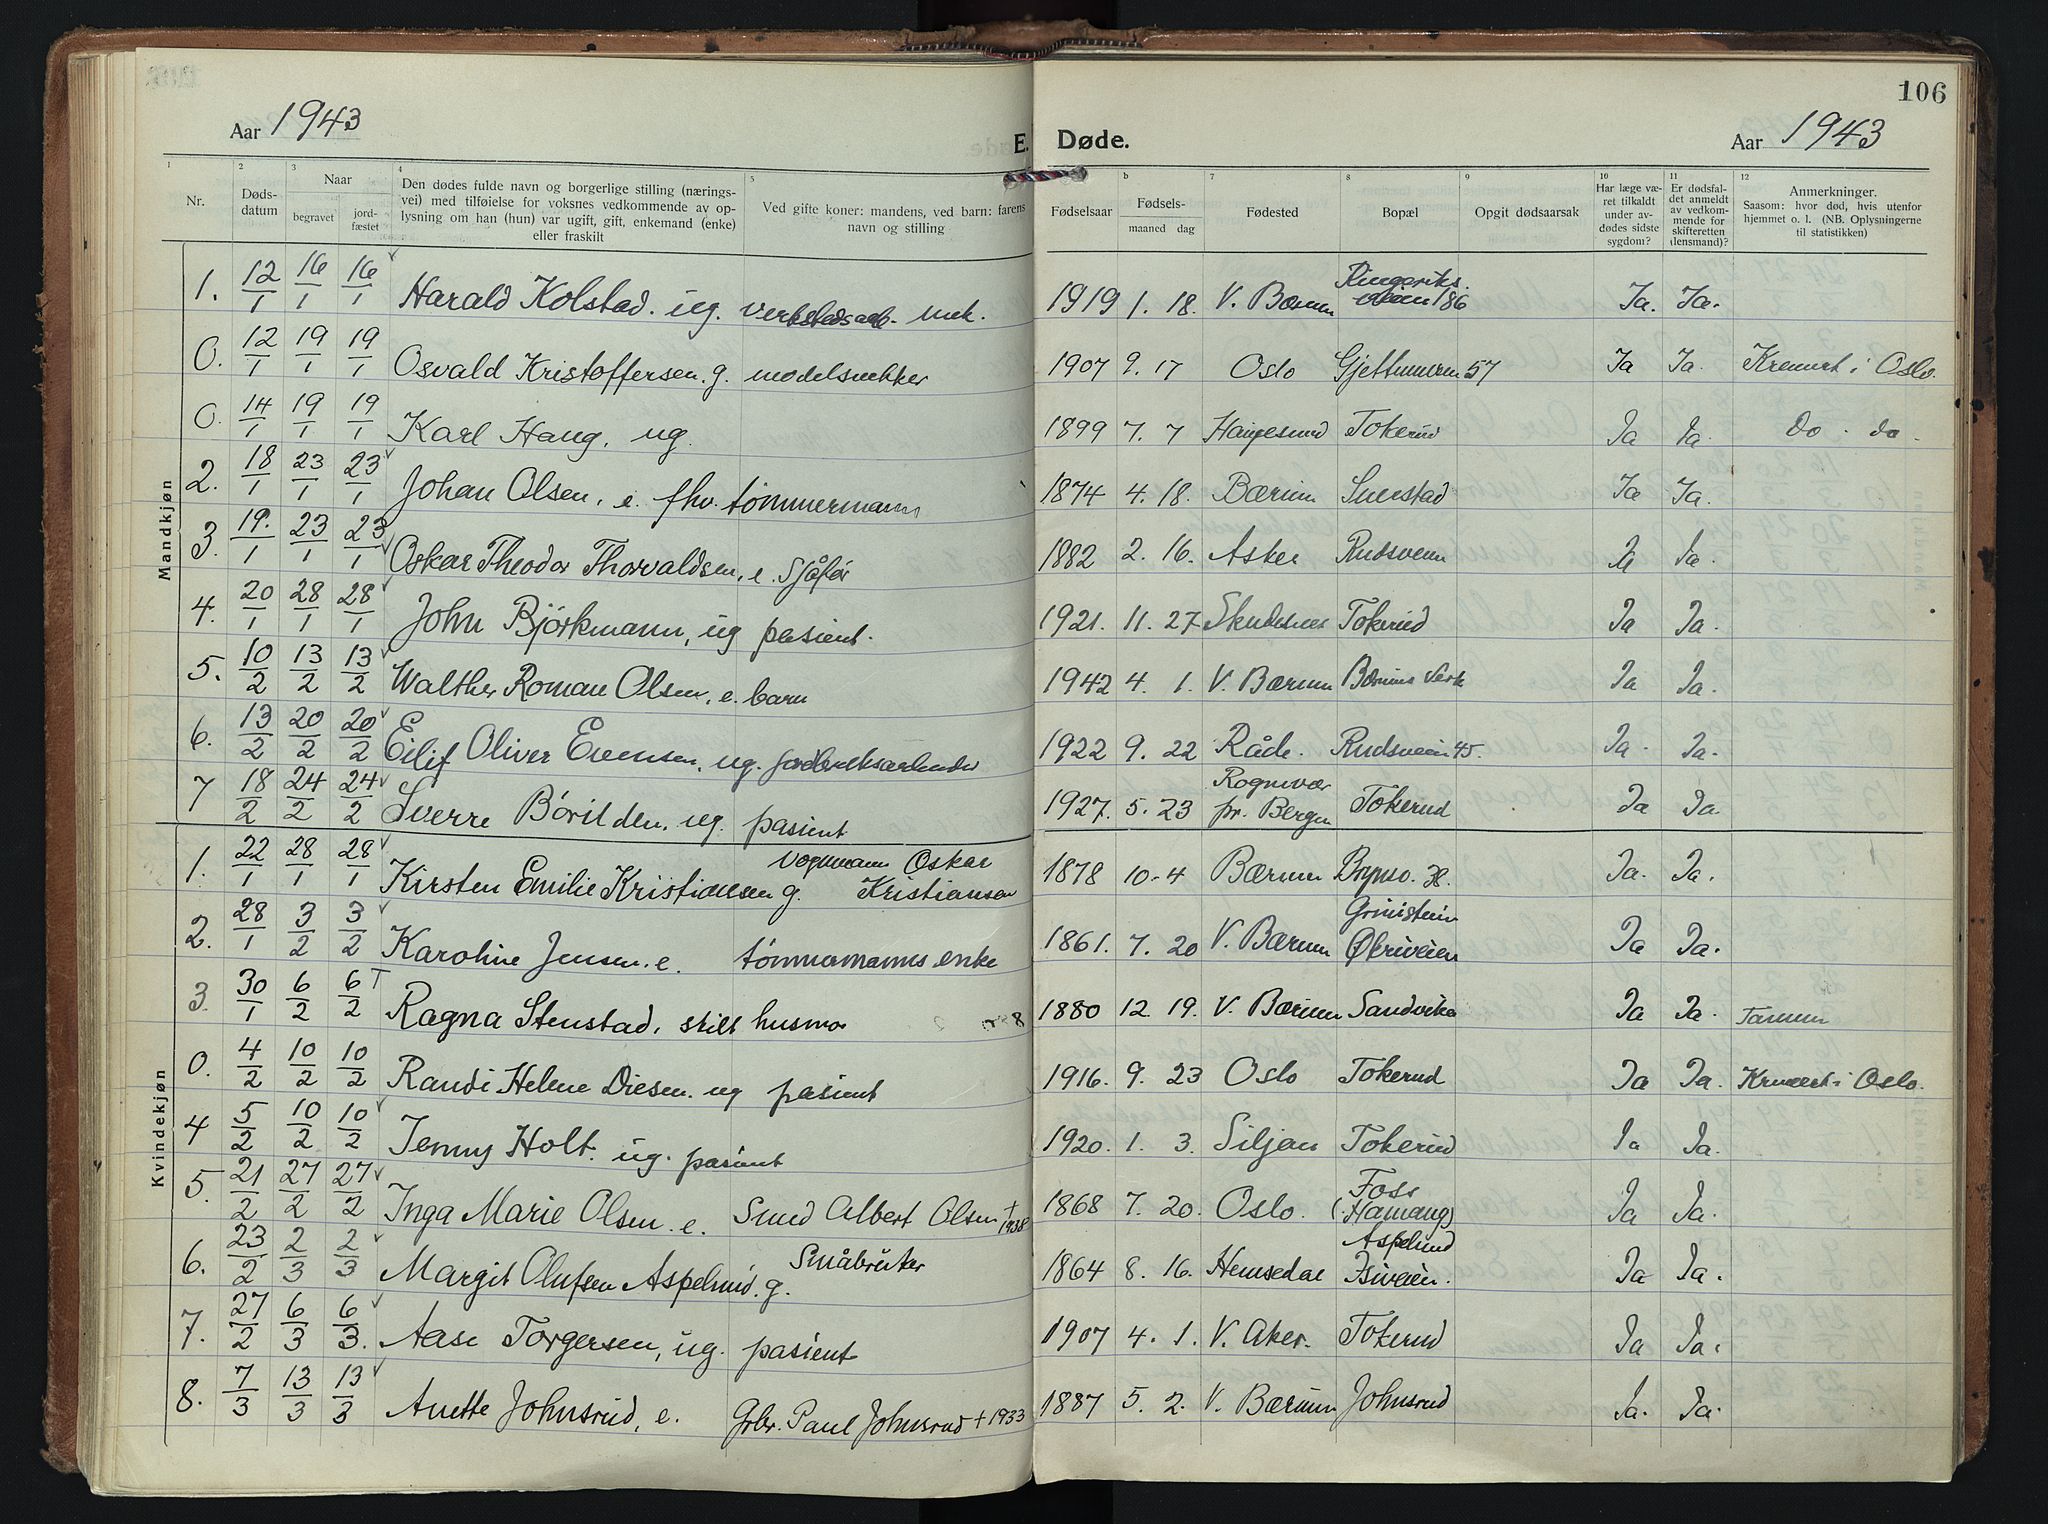 106
Aar 1943
E. Døde.
Aar 1943
1 2 3 4 5 b 7 8 9 10 11 12
Nr. Døds-datum Naar begravet jord-fæstet
Den dødes fulde navn og borgerlige stilling (nærings-
vei) med tilføielse for voksnes vedkommende av op-
lysning om han (hun) var ugift, gift, enkemand (enke)
eller fraskilt
Ved gifte koner: mandens, ved barn: farens
navn og stilling
Fødselsaar
Fødsels-
maaned dag
Fødested
Bopæl
Opgit dødsaarsak
Har læge væ-
ret tilkaldt
under av-
dødes sidste
sygdom?
Er dødsfal-
det anmeldt
av vedkom-
mende for
skifteretten
(lensmand)?
Anmerkninger.
Saasom: hvor død, hvis utenfor
hjemmet o. l. (NB. Oplysningerne
til statistikken)
Mandkjøn
1. 12/1 16/1 16/1 Harald Kolstad. ug. verkstedsarb. mek. 1919 1. 18. V. Bærum Ringeriks.veien 186 Ja. Ja.
0. 12/1 19/1 19/1 Osvald Kristoffersen. g. modelsnekker 1907 9. 17 Oslo Gjettumveien 57 Ja Ja. Kremert i Oslo.
0. 14/1 19/1 19/1 Karl Haug, ug. 1899 7. 7 Haugesund Tokerud Ja Ja. Do. do.
2. 18/1 23/1 23/1 Johan Olsen, e. fhv. tømmermann 1874 4. 18. Bærum Ja Ja.
3. 19./1 23/1 23/1 Oskar Theodor Thorvaldsen, e. Sjåfør 1882 2. 16. Asker Rudsveien Ja Ja.
4. 20/1 28/1 28/1 John Bjørkmann, ug pasient. 1921. 11. 27 Skudesnes Tokerud Ja Ja.
5. 10/2 13/2 13/2 Walther Roman Olsen, e. barn 1942 4. 1. V. Bærum Bærums Verk Ja Ja.
6. 13/2 20/2 20/2 Eilif Oliver Evensen, ug. jordbruksarbeider 1922 9. 22 Råde. Rudsveien 45. Ja. Ja.
7 18/2 24/2 24/2 Sverre Børilden, ug. pasient 1927. 5. 23 Rognevær pr. Bergen Tokerud Ja Ja.
Kvindekjøn
1. 22/1 28/1 28/1 Kirsten Emilie Kristiansen g. vognmann Oskar Kristiansen 1878 10-4 Bærum Ja. Ja.
2. 28/1 3/2 3/2 Karoline Jensen. e. tømmermanns enke 1861. 7. 20 V. Bærum Øvriveien Ja Ja.
3. 30/1 6/2 6/2 T Ragna Stenstad, skilt husmor 1880 12 19. V. Bærum Sandvika Ja Ja. Tanum
0. 4/2 10/2 10/2 Randi Helene Diesen. ug pasient 1916. 9. 23 Oslo Tokerud Ja Ja. Kremert i Oslo.
4 5/2 10/2 10/2 Jenny Holt. ug. pasient 1920. 1. 3. Siljan Tokerud Ja Ja.
5. 21/2 27/2 27/2 Inga Marie Olsen. e. Smed Albert Olsen † 1938 1868 7. 20. Oslo. Foss (Hamang) Ja Ja.
6. 23/2 2/3 2/3 Margit Olufsen Aspelund. g. Småbruker 1864 8. 16. Hemsedal Aspelund Isiveien. Ja Ja.
7. 27/2 6/3 6/3. Aase Torgersen, ug. pasient 1907 4. 1. V. Aker. Tokerud Ja Ja.
8. 7/3 13/3 13/3 Anette Johnsrud, e. Grbr. Paul Johnsrud † 1933 1887 5. 2. V. Bærum Johnsrud Ja. Ja.